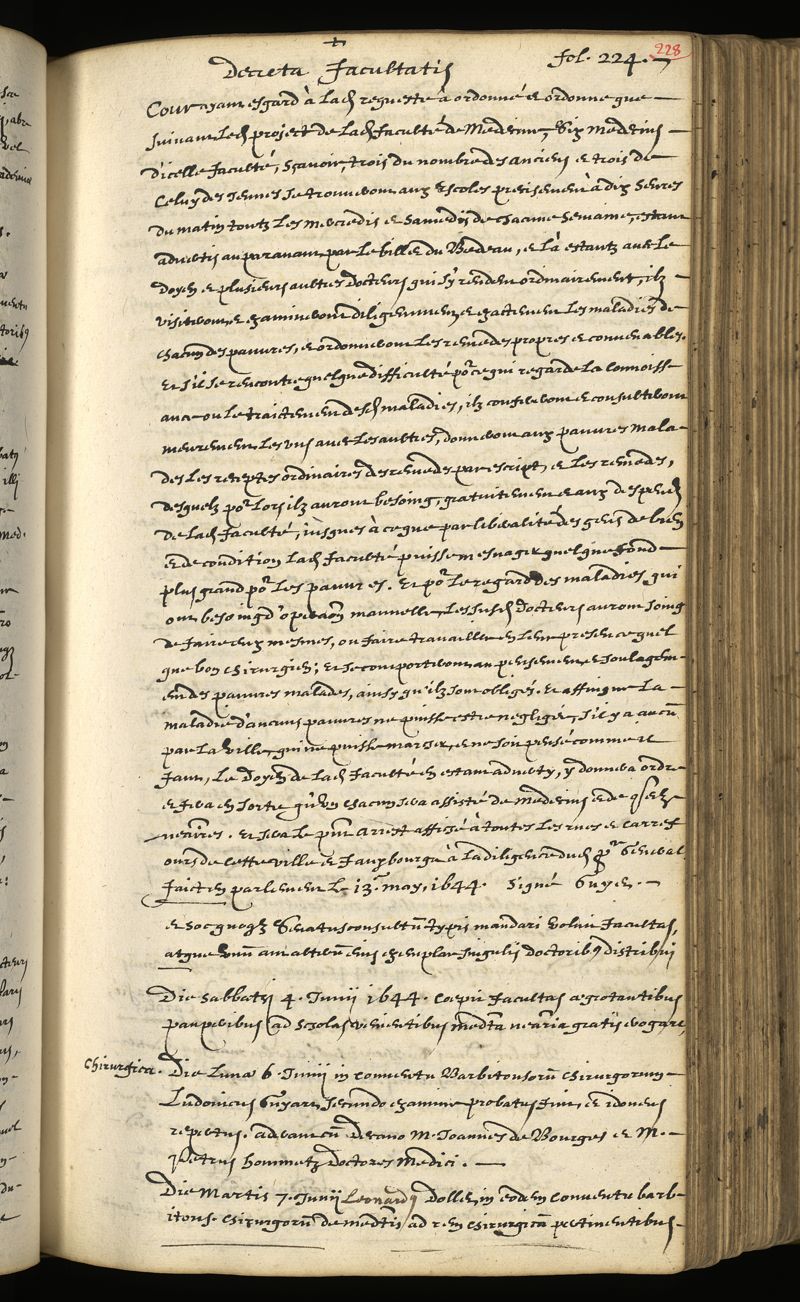 Decreta Facultatis fol. 224.
228
Cour ayant esgard à lad. requeste à ordonné et ordonne que
suivant led. project de lad. faculté de Medecine, Six Medecins
d'icelle faculté, sçavoir, trois du nombre des anciens et trois de
Celuy des Jeunes se trouveront aux Escoles precisement à dix heures
du matin touts Les Mercredis et Samedis de chacune Semaine, estant
advertis auparavant par le billet du Bedeau, et Là estants avec Le
doyen et plusieurs aultres docteurs qui s'y rendent ordinairement, ilz
visiteront, examineront diligemment, exactement Les maladies de
chacun des pauvres, et ordonneront Les remedes propres et convenables.
Et s'il se rencontre quelque difficulté por ce qui regarde La connoiss
ance ou Le traictement desd. maladies, ilz confereront et consulteront
meurement Les uns avec Les aultres, donneront aux pauvres mala
des Les receptes ordinaires des remedes par escript, et Les remedes,
desquelz por Lors ilz auront besoing, gratuitement et aux despens
de Lad. faculté, iusques à ce que par liberalité des gens de bien
et de condition Lad. faculté puisse mesnager quelque fond
plus grand por Les pauvres. Et por Le regard des maladies qui
ont besoing d'operaon manuelle, Lesdusd. docteurs auront soing
de faire eux mesmes, ou faire travailler en Leur presence quel
que bon chirurgien; et se comporteront au pensement et soulagem-
ent des pauvres malades, ainsy qu'ilz sont obligés. Et affin que La
maladie d'aucuns pauvres ne puisse estre negligée, s'il y a aucū
par La ville, qui ne puisse marcher, et ne soit pensé comme il
faut, Le Doyen de Lad. faculté en estant adverty, y donnera ordre
et fera en sorte qu'un chacun sera assisté de medecins et de
neaires. Et sera Le pnt Arrest affiché à toutes Les rues et carref
ours de cette ville et fauxbourgs à La diligence dud. pr General
faict en parlement Le 13. may, 1644. Signé Guyet.
et hoc quoq3 Senatusconsultū typis mandari voluit facultas,
atque unū aut alterū eius exemplar singulis doctoribus distribui
Die Sabbathi 4. Junii 1644. coepit facultas aegrotantibus
pauperibus ad scholas venientibus medta nearia gratis erogare,
Chirurgica. Die Lunae 6. Junii in conventu Barbitonsorū chirurgorum
Ludovicus Guyart, secundo examine probatus fuit, et idoneus
repertus. aderant cū Decano M. Joannes de Bourges et M.
Petrus hommetz doctores Medici.
Die Martis 7. Junii Leonardus Dolle, in eodem conventu barb-
itons. chirurgorū de medtis ad rem chirurgicā pertinentibus